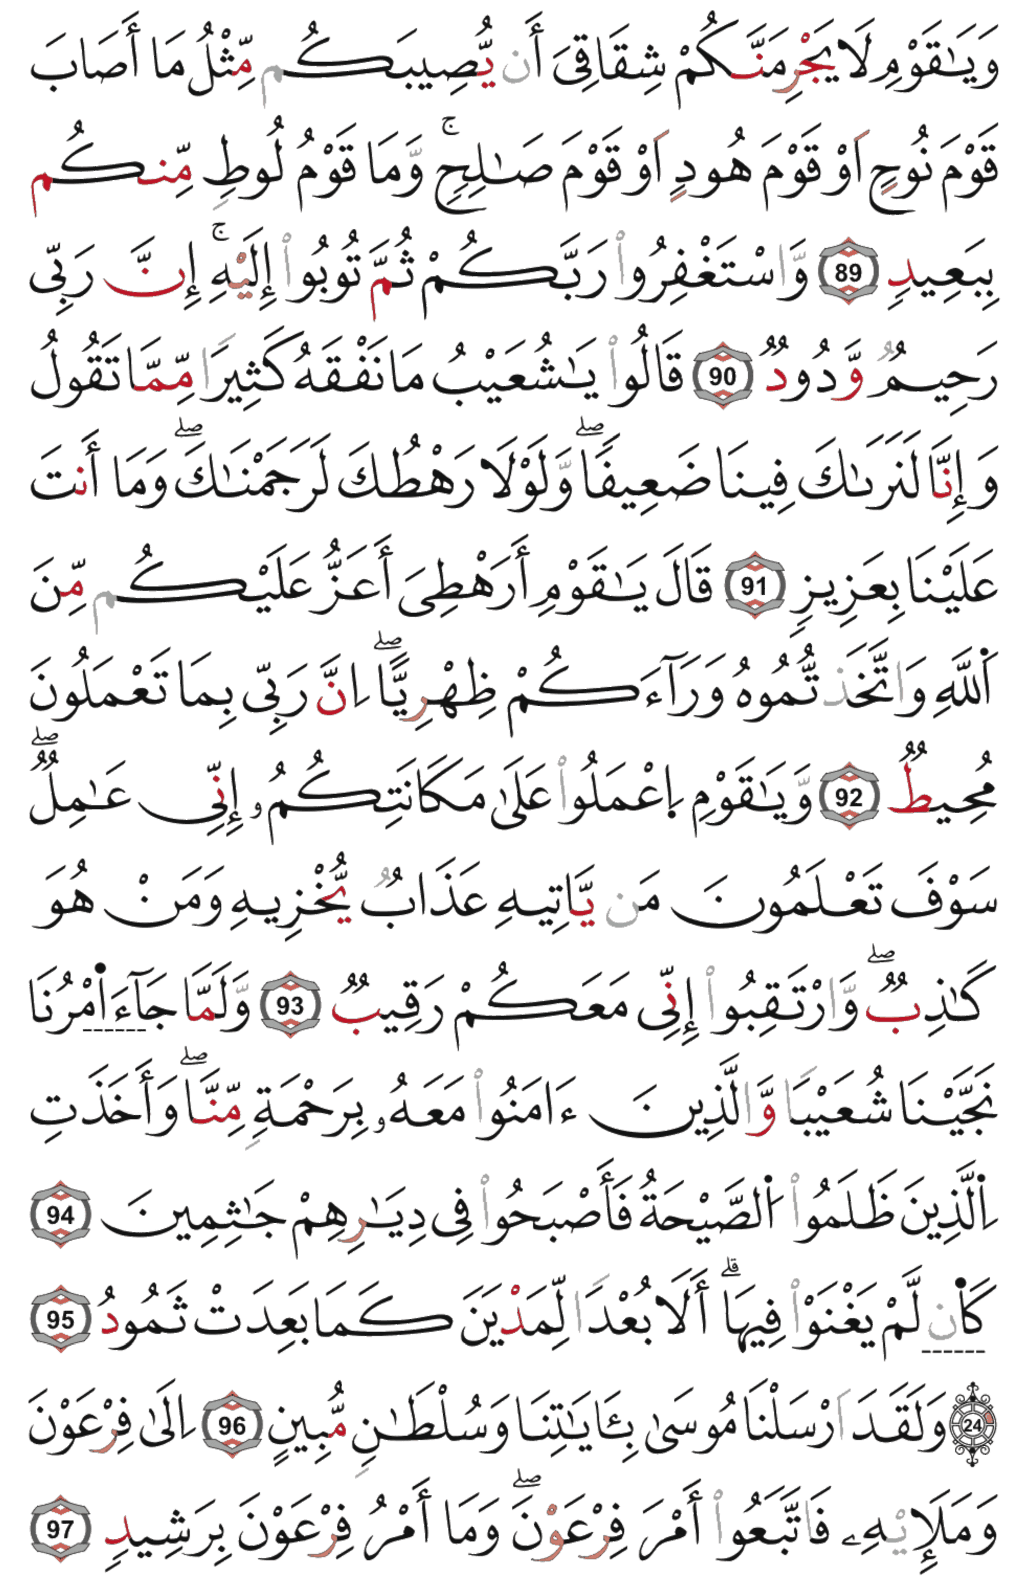 وَيَٰقَوْمِ لَا يَجْرِمَنَّكُمْ شِقَاقِيَ أَن يُّصِيبَكُم مِّثْلُ مَا أَصَابَ
قَوْمَ نُوحٍ اَوْ قَوْمَ هُودٍ اَوْ قَوْمَ صَٰلِحٍۚ وَّمَا قَوْمُ لُوطٍ مِّنكُم
بِبَعِيدٍ 89 وَّاسْتَغْفِرُواْ رَبَّكُمْ ثُمَّ تُوبُواْ إِلَيْهِۚ إِنَّ رَبِّي
رَحِيمٌ وَّدُودٌ 90 قَالُواْ يَٰشُعَيْبُ مَا نَفْقَهُ كَثِيرًا مِّمَّا تَقُولُ
وَإِنَّا لَنَرَىٰكَ فِينَا ضَعِيفًاۖ وَّلَوْلَا رَهْطُكَ لَرَجَمْنَٰكَۖ وَمَا أَنتَ
عَلَيْنَا بِعَزِيزٍ 91 قَالَ يَٰقَوْمِ أَرَهْطِيَ أَعَزُّ عَلَيْكُم مِّنَ
اَللَّهِ وَاتَّخَذتُّمُوهُ وَرَآءَكُمْ ظِهْرِيًّاۖ اِنَّ رَبِّي بِمَا تَعْمَلُونَ
مُحِيطٌ 92 وَّيَٰقَوْمِ اِعْمَلُواْ عَلَىٰ مَكَانَتِكُمُۥ إِنِّي عَٰمِلٌۖ
سَوْفَ تَعْلَمُونَ مَن يَّاتِيهِ عَذَابٌ يُّخْزِيهِ وَمَنْ هُوَ
كَٰذِبٌۖ وَّارْتَقِبُواْ إِنِّي مَعَكُمْ رَقِيبٌ 93 وَّلَمَّا جَآءَ اْمْرُنَا
نَجَّيْنَا شُعَيْبًا وَّالَّذِينَ ءَامَنُواْ مَعَهُۥ بِرَحْمَةٍ مِّنَّاۖ وَأَخَذَتِ
اِلَّذِينَ ظَلَمُواْ اُلصَّيْحَةُ فَأَصْبَحُواْ فِي دِيَٰرِهِمْ جَٰثِمِينَ 94
كَأْن لَّمْ يَغْنَوْاْ فِيهَاۗ أَلَا بُعْدًا لِّمَدْيَنَ كَمَا بَعِدَتْ ثَمُودُ 95
24 وَلَقَدَ اَرْسَلْنَا مُوسَىٰ بِـَٔايَٰتِنَا وَسُلْطَٰنٍ مُّبِينٍ 96 اِلَىٰ فِرْعَوْنَ
وَمَلَإِيْهِۦ فَاتَّبَعُواْ أَمْرَ فِرْعَوْنَۖ وَمَا أَمْرُ فِرْعَوْنَ بِرَشِيدٍ 97